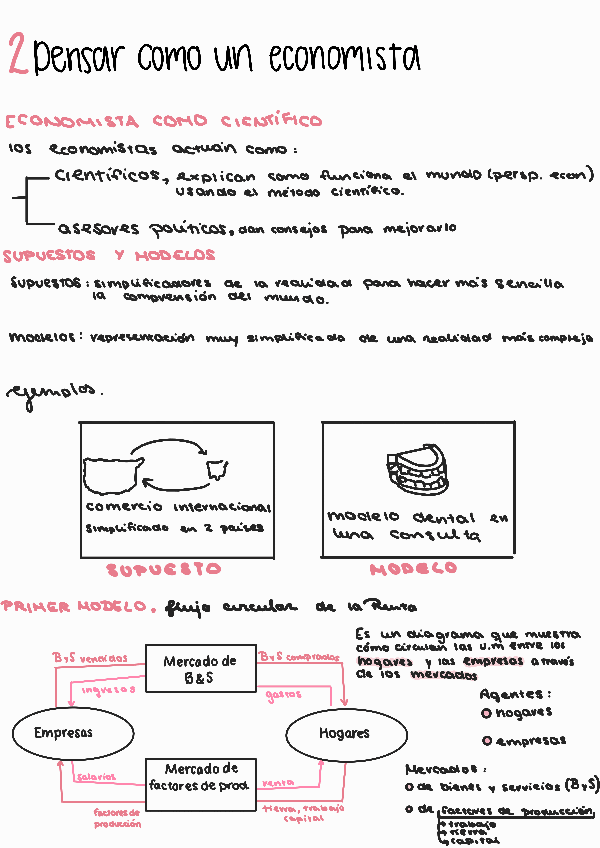 2 Pensar como un economista
ECONOMISTA COMO CIENTÍFICO
los economistas actúan como:
científicos, explican como funciona el mundo (persp. econ)
usando el método científico.
asesores políticos, dan consejos para mejorarlo
SUPUESTOS Y MODELOS
SUPUESTOS: simplificadores de la realidad para hacer más sencilla
la comprensión del mundo.
Modelos: representación muy simplificada de una realidad más compleja
ejemplos.
comercio internacional
simplificado en 2 países
SUPUESTO
modelo dental en
una consulta
MODELO
PRIMER MODELO. flujo circular de la Renta
Es un diagrama que muestra
cómo circulan las u.m entre los
hogares y las empresas a través
de los mercados
ByS vendidos
Mercado de
B&S
ByS comprados
ingresos
gastos
Empresas
Hogares
salarios
Mercado de
factores de prod.
renta
factores de
producción
tierra, trabajo
capital
Agentes:
hogares
empresas
Mercados:
de bienes y servicios (ByS)
de factores de producción
trabajo
tierra
capital